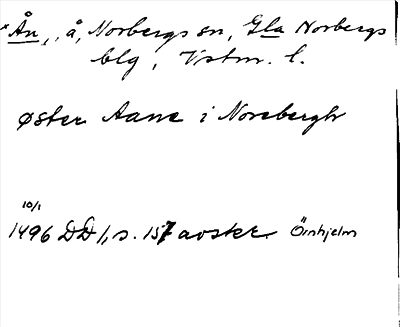 *Ån, å, Norbergs sn, Gla Norbergs
blg, Vstm. l.
øster Aane i Norebergh
10/1
1496 DD 1, s. 157 avskr. Örnhjelm